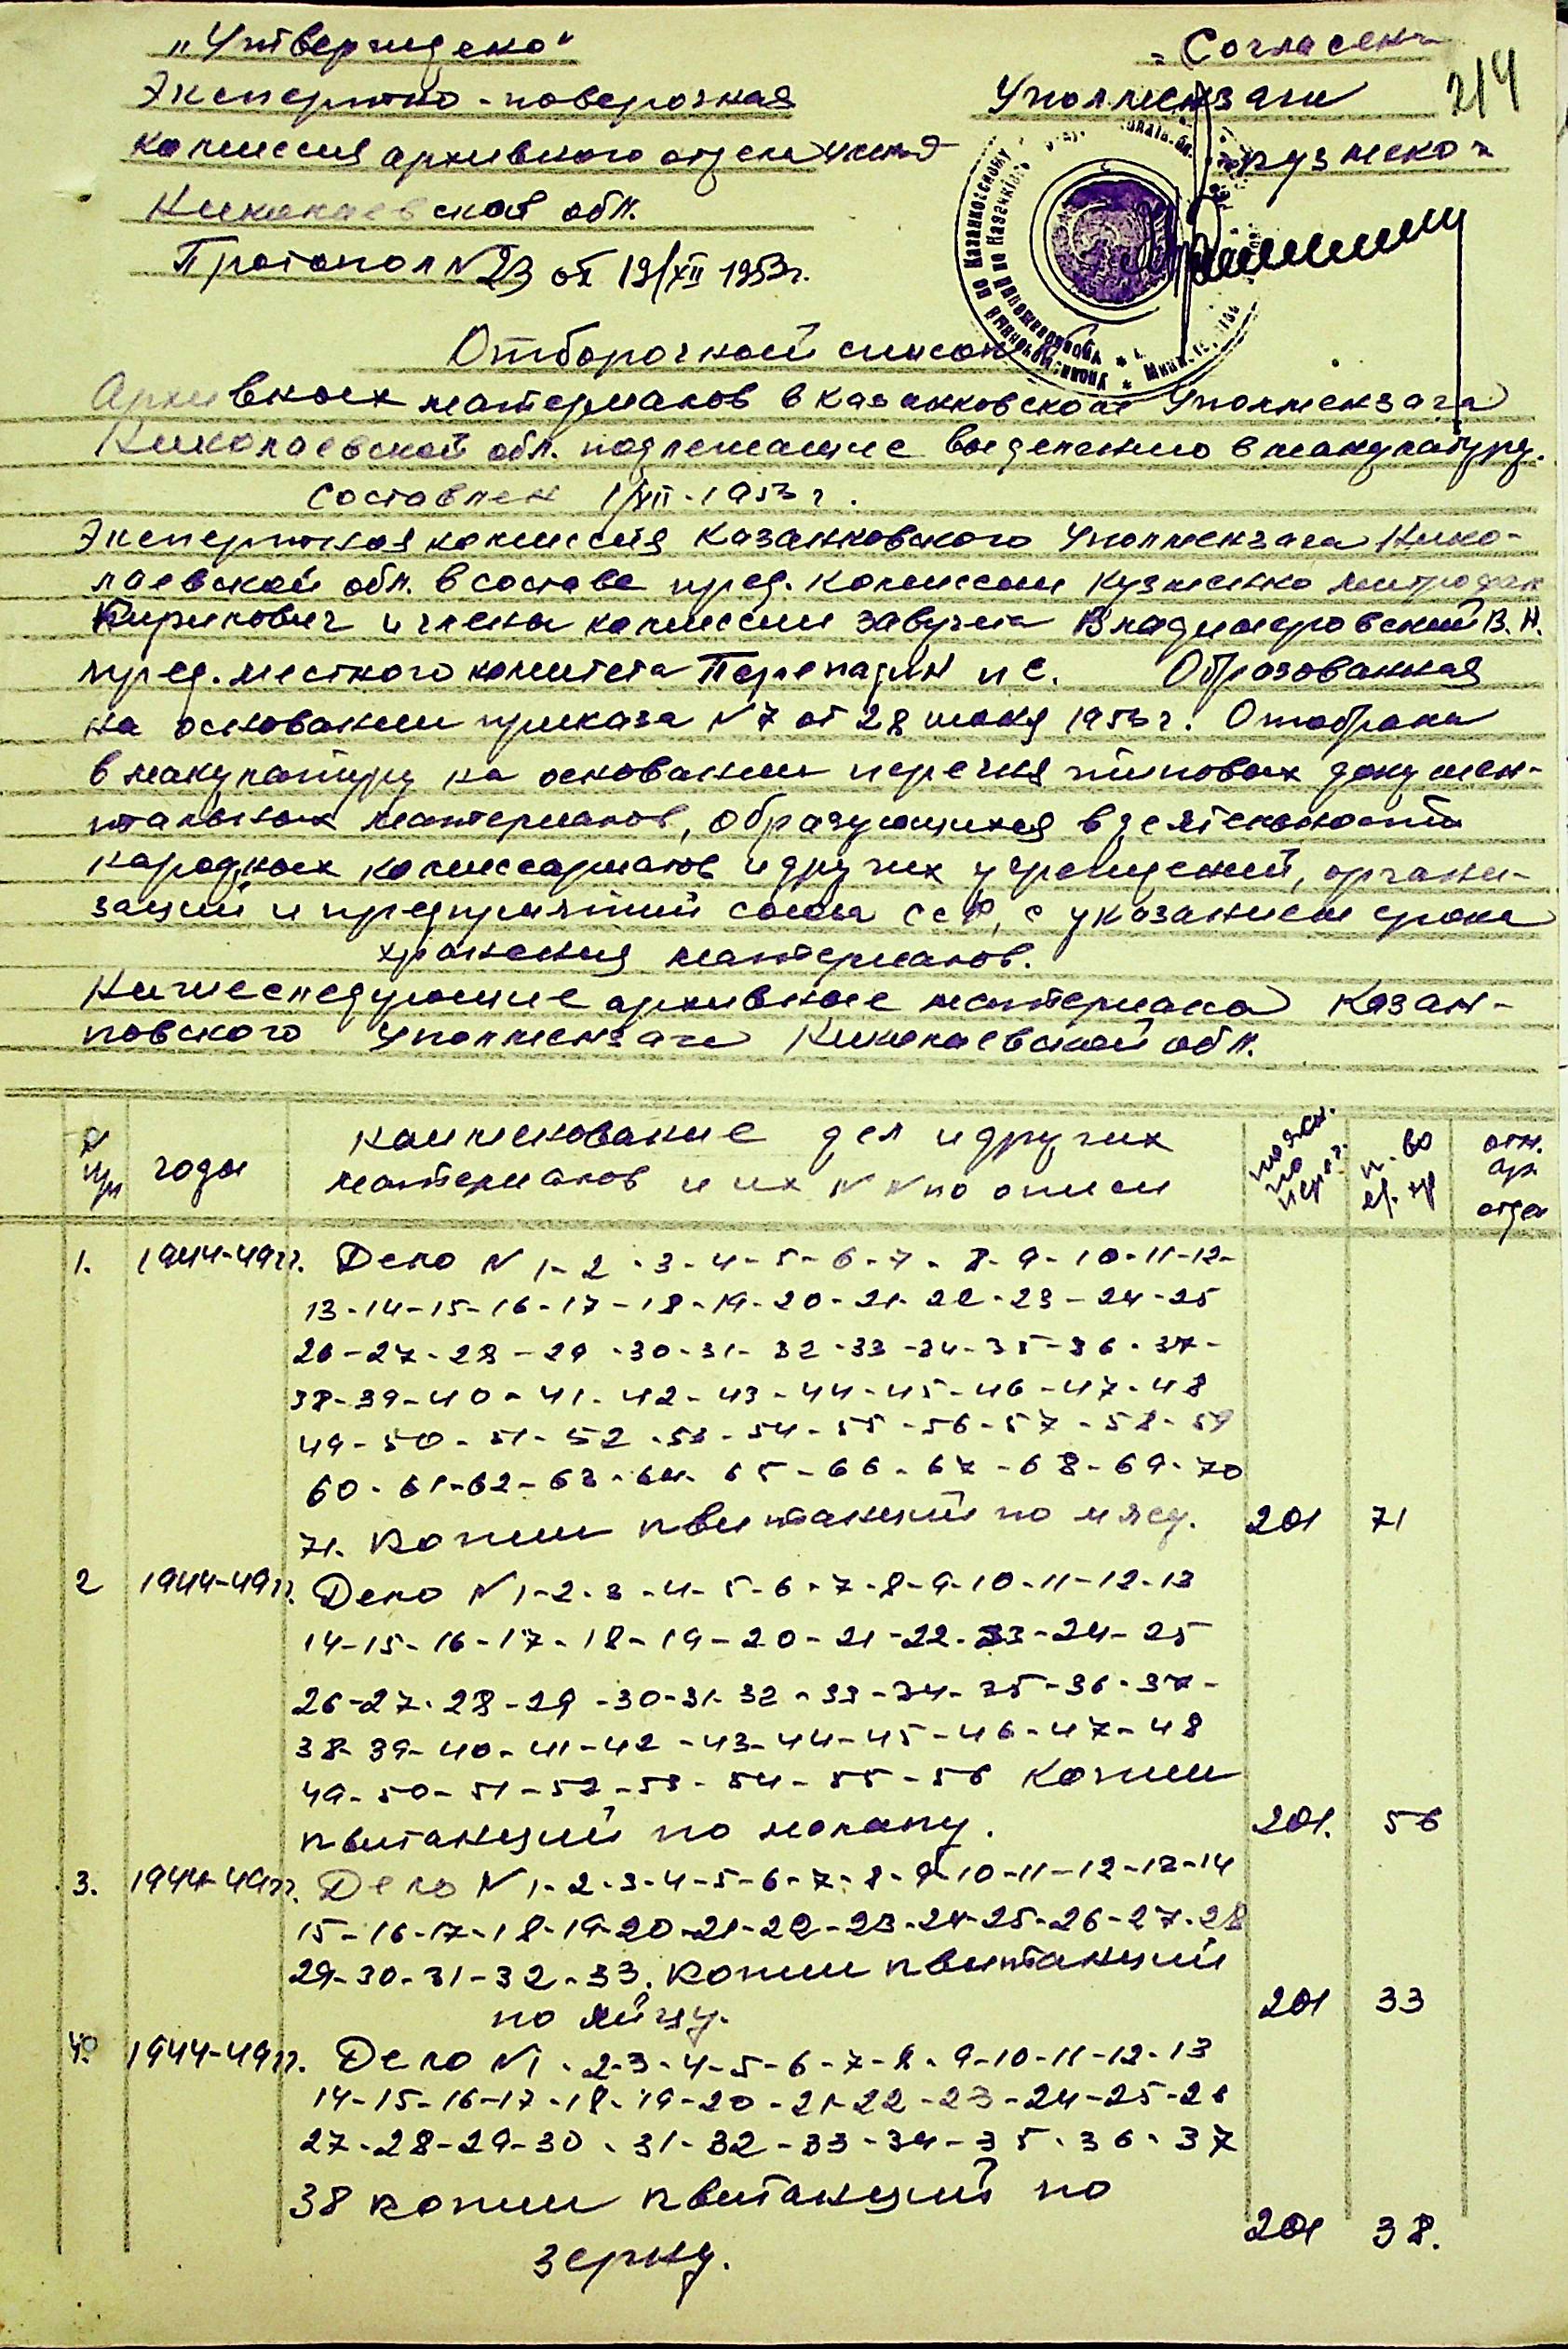 „Утверждено"
„Согласен
214
Экспертно-поверочная
Уполмензаги
комиссия архивного отдела
Кузменко"
Николаевской обл.
Протокол N23 от 19/XII 1953г.
Отборочный список
Архивных материалов в Казанковском Уполмензага
Николаевской обл. подлежащие выделению в макулатуру.
Составлен 1/XII-1953г.
Экспертная комиссия Казанковского Уполмензага Нико-
лаевской обл. в составе пред. комиссии Кузменко Митрофан
Кирилович и члены комиссии завучета Владимеровский В.Н.
пред. местного комитета Перепадин и С. Образованная
на основании приказа N7 от 28 июня 1953г. Отобрала
в макулатуру на основании перечня типовых докумен-
тальных материалов, образующихся в деятельности
народных комиссариатов и других учреждений, органи-
заций и предприятий союза ССР, с указанием срока
хранения материалов.
Нижеследующие архивные материала Казан-
ковского Уполмензаги Николаевской обл.
N пп годы наименование дел и других
материалов и их N N по описи
поясн. по переч. к-во ед. хр отм. арх отдел
1. 1944-49гг. Дело N 1-2-3-4-5-6-7-8-9-10-11-12-
13-14-15-16-17-18-19-20-21-22-23-24-25
26-27-28-29-30-31-32-33-34-35-36-37-
38-39-40-41-42-43-44-45-46-47-48
49-50-51-52-53-54-55-56-57-58-59
60-61-62-63-64-65-66-67-68-69-70
71. Копии квитанций по мясу. 201 71
2 1944-49гг. Дело N 1-2-3-4-5-6-7-8-9-10-11-12-13
14-15-16-17-18-19-20-21-22-23-24-25
26-27-28-29-30-31-32-33-34-35-36-37-
38-39-40-41-42-43-44-45-46-47-48
49-50-51-52-53-54-55-56 Копии
квитанций по молоку. 201. 56
3. 1944-49гг. Дело N 1-2-3-4-5-6-7-8-9-10-11-12-13-14
15-16-17-18-19-20-21-22-23-24-25-26-27-28
29-30-31-32-33. Копии квитанций
по яйцу. 201 33
4. 1944-49гг. Дело N1-2-3-4-5-6-7-8-9-10-11-12-13
14-15-16-17-18-19-20-21-22-23-24-25-26
27-28-29-30-31-32-33-34-35-36-37
38 копии квитанций по
зерну. 201 38.